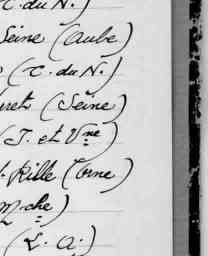 C. du N.)
Seine (Aube)
(C. du N.)
(Seine)
(I. et Vne)
Rille (Orne)
Mche)
(L. a.)